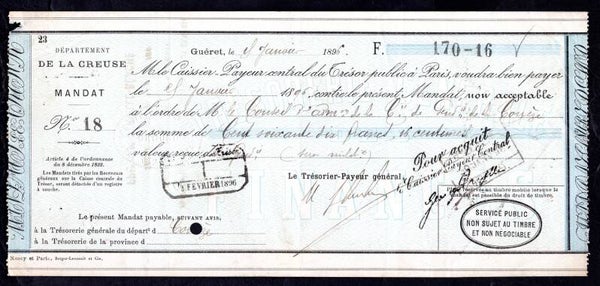 23
DÉPARTEMENT
DE LA CREUSE
MANDAT
No. 18
Article 4 de l'ordonnance
du 8 décembre 1832.
Les Mandats tirés par les Receveurs
généraux sur la Caisse centrale du
Trésor, seront détachés d'un registre
à souche.
Guéret, le Janvier 1896 F. 170-16
M. le Caissier-Payeur central du Trésor public à Paris, voudra bien payer
le Janvier 1896, contre le présent Mandat, non acceptable
à l'ordre de M. le Conseil d'adm. de la Cie de de la Corrèze
la somme de Cent soixante dix francs, 16 centimes
valeur reçue
Pour acquit
Caissier Payeur Central
Le Trésorier-Payeur général,
1 FÉVRIER 1896
est réservée au timbre mobile lorsque le
est passible du droit de timbre.
SERVICE PUBLIC
NON SUJET AU TIMBRE
ET NON NÉGOCIABLE
Le présent Mandat payable, SUIVANT AVIS,
à la Trésorerie générale du départt d Corrèze
à la Trésorerie de la province d
Nancy et Paris, Berger-Levrault et Cie.